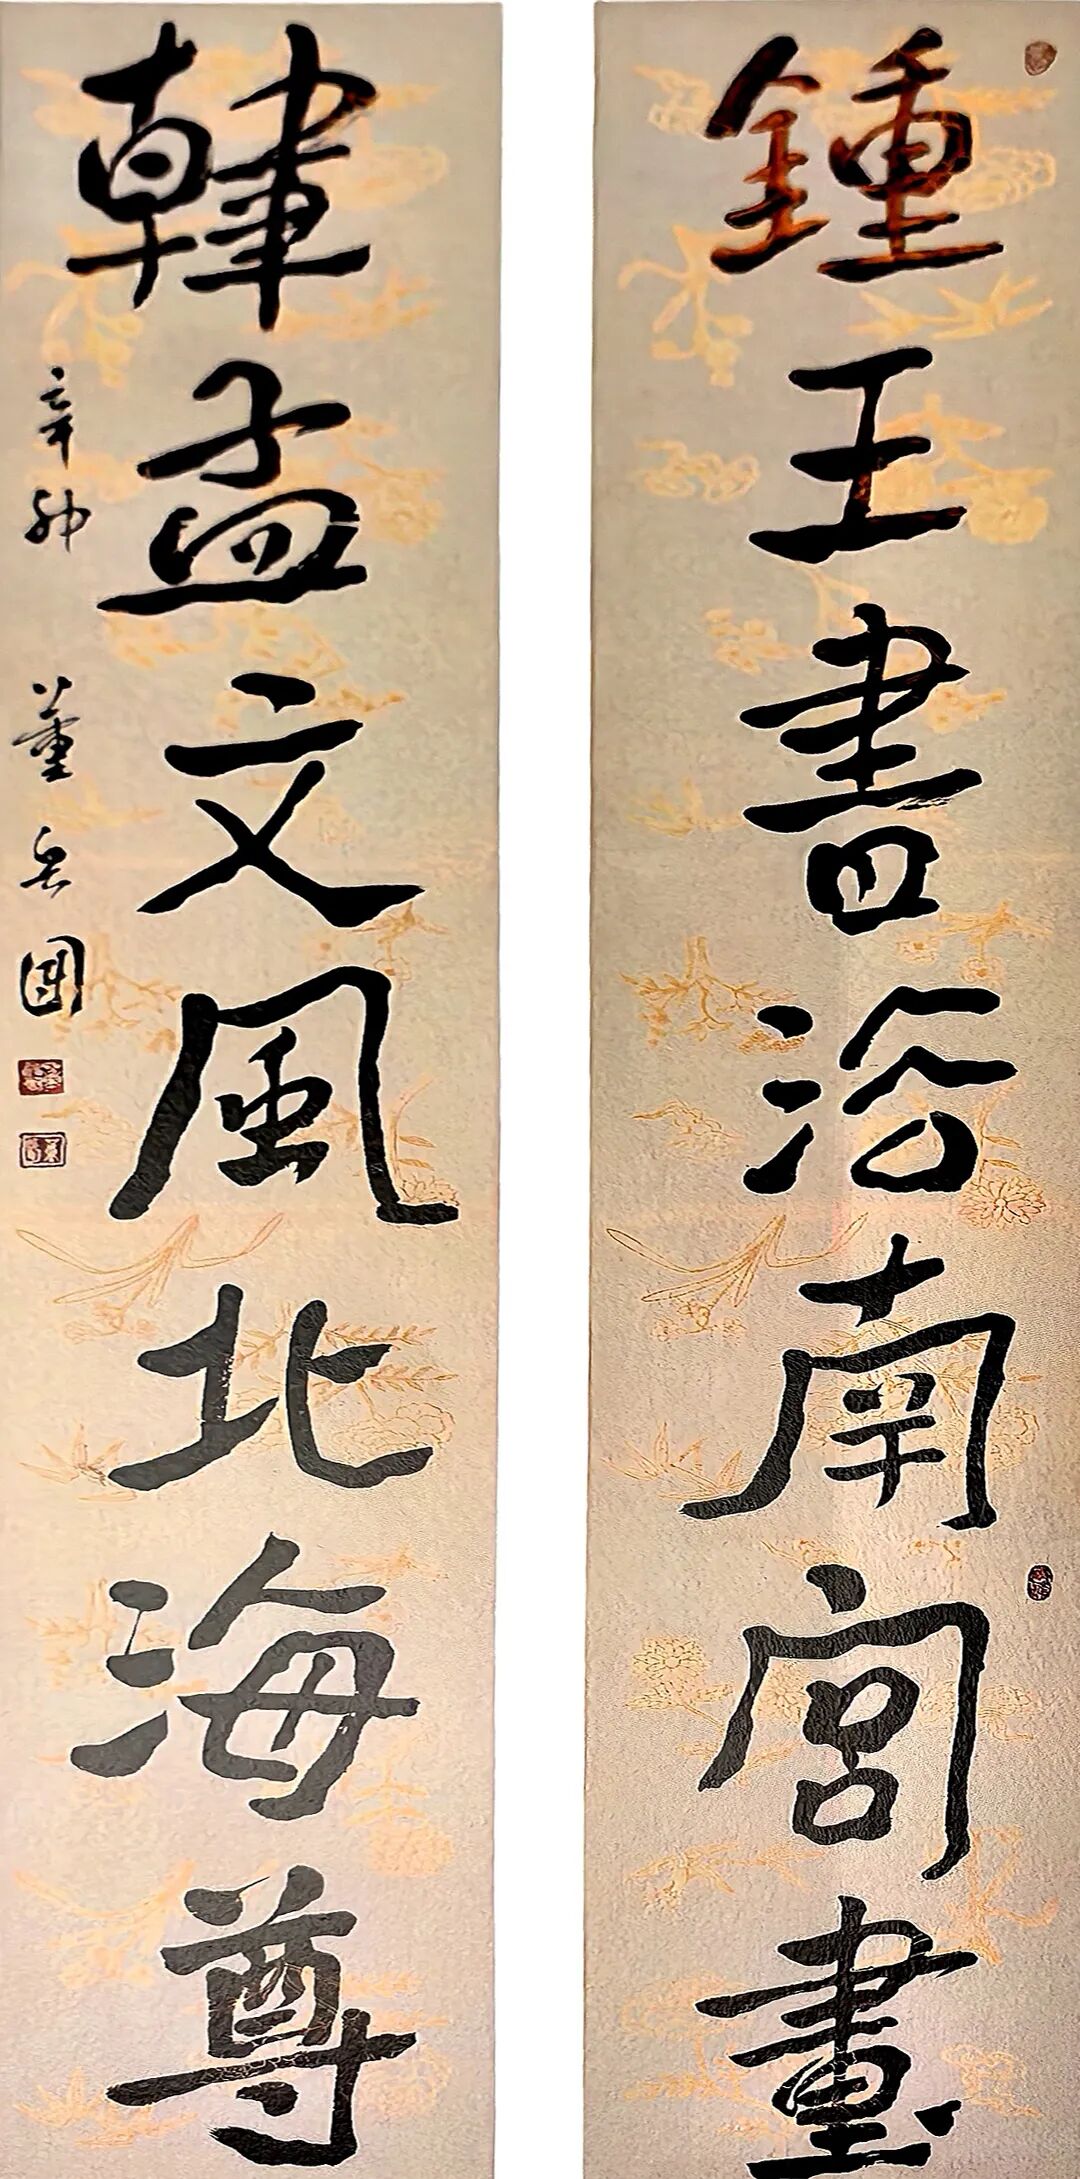 鍾王書沿南宮畫
韓孟文風北海尊
辛卯 董